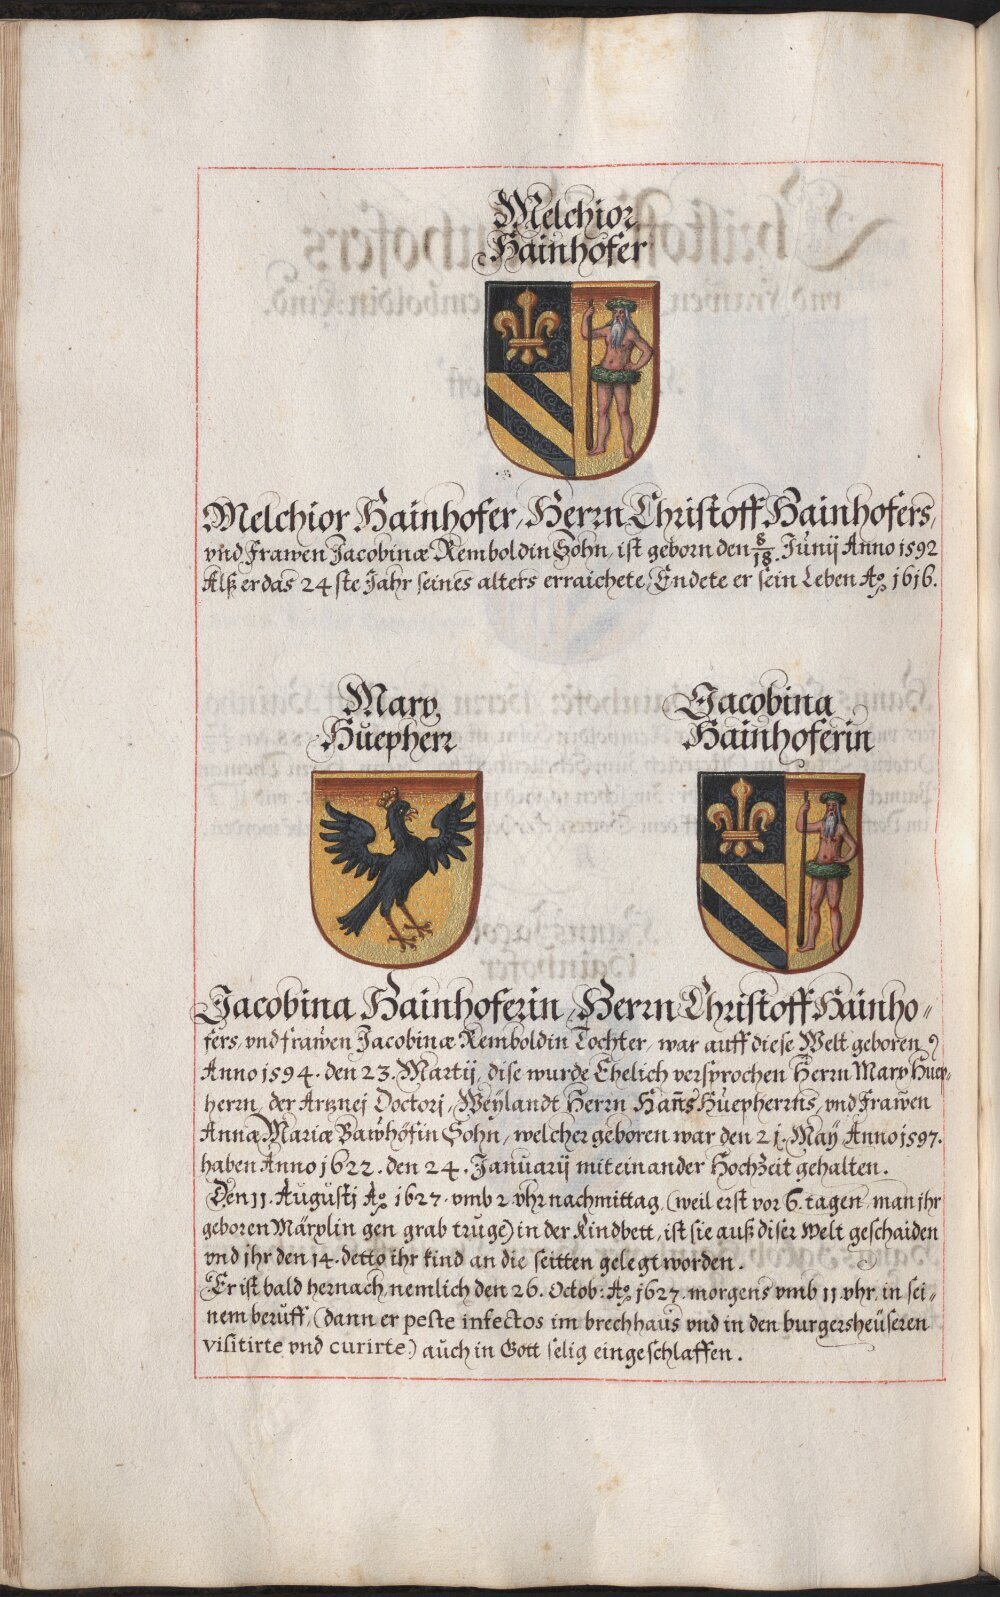 Melchior
Hainhofer
Melchior Hainhofer, Herrn Christoff Hainhofers,
vnd Frawen Jacobinæ Remboldin Sohn, ist geborn den 8/18. Junij Anno 1592
Alß er das 24 ste Jahr seines alters erraichete, Endete er sein Leben Aō 1616.
Marx
Huepherr
Jacobina
Hainhoferin
Jacobina Hainhoferin, Herrn Christoff Hainho„
fers, vnd frawen Jacobinæ Remboldin Tochter, war auff diese Welt geboren
Anno 1594. den 23. Martij, dise wurde Ehelich versprochen Herrn Marx Huep„
herrn, der Artznej Doctorj, Weÿlandt Herrn Hañs Huepherrns, vnd Frawen
Annæ Mariæ Bawhöfin Sohn, welcher geboren war den 21. Maÿ Anno 1597.
haben Anno 1622. den 24. Januarij miteinander Hochzeit gehalten.
Den 11. Augustj Aō 1627. vmb 2. vhr nachmittag, (weil erst vor 6. tagen man jhr
geboren Märxlin gen grab truge) in der Kindbett, ist sie auß diser welt geschaiden
vnd jhr den 14. detto ihr kind an die seitten gelegt worden.
Er ist bald hernach, nemlich den 26. Octob: Aō 1627. morgens vmb 11 vhr, in sei„
nem beruff, (dann er peste infectos im brechhaus vnd in den burgersheüseren
visitirte vnd curirte) auch in Gott selig eingeschlaffen.